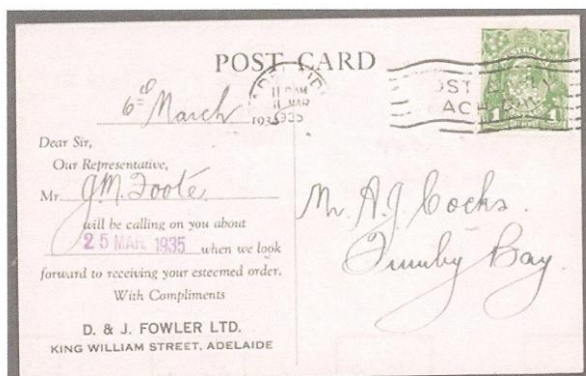 POST CARD
6th March
ADELAIDE
11 MAR
1935
AUSTRALIA
1 1
Dear Sir,
Our Representative,
Mr J.M. Foote
will be calling on you about
25 MAR 1935 when we look
forward to receiving your esteemed order.
With Compliments
D. & J. FOWLER LTD.
KING WILLIAM STREET, ADELAIDE
Mr A.J. Cocks.
Tumby Bay.